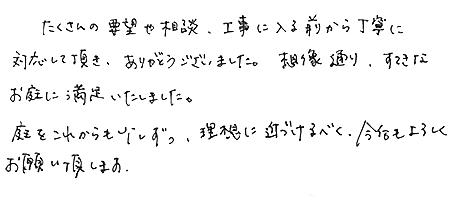 たくさんの要望や相談、工事に入る前から丁寧に
対応して頂き、ありがとうございました。想像通り、すてきな
お庭に満足いたしました。
庭をこれからも少しずつ、理想に近づけるべく、今后もよろしく
お願い頂します。